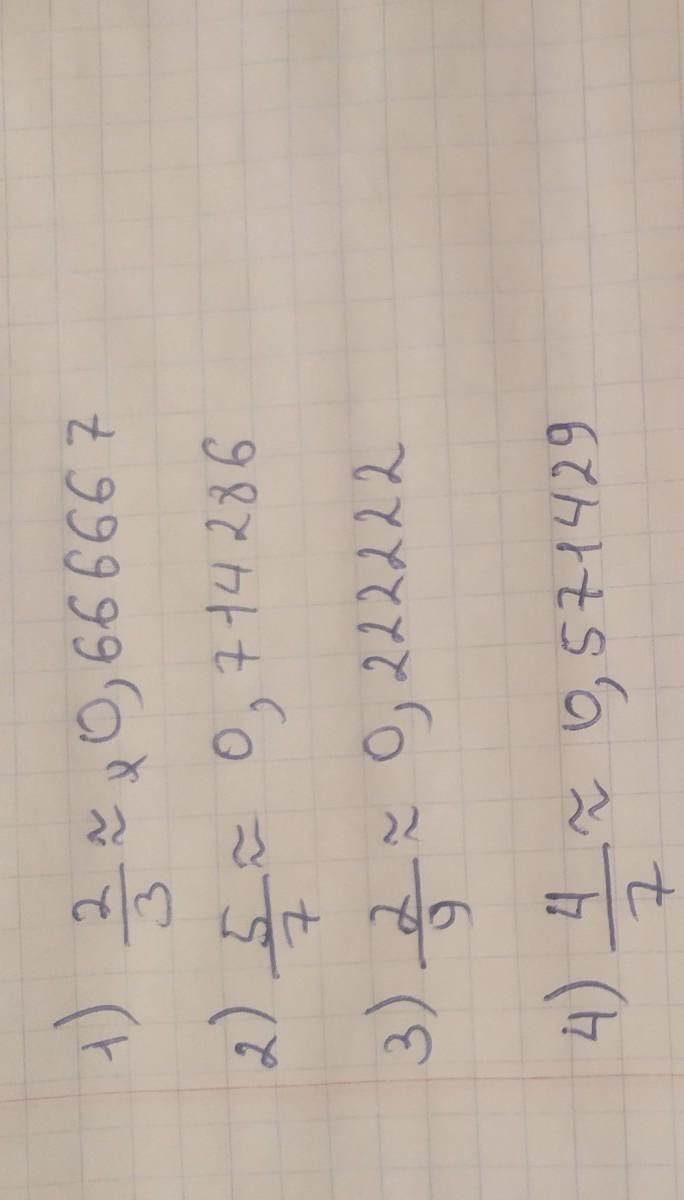 1) 2/3 ≈ 0,666667
2) 5/7 ≈ 0,714286
3) 2/9 ≈ 0,222222
4) 4/7 ≈ 0,571429